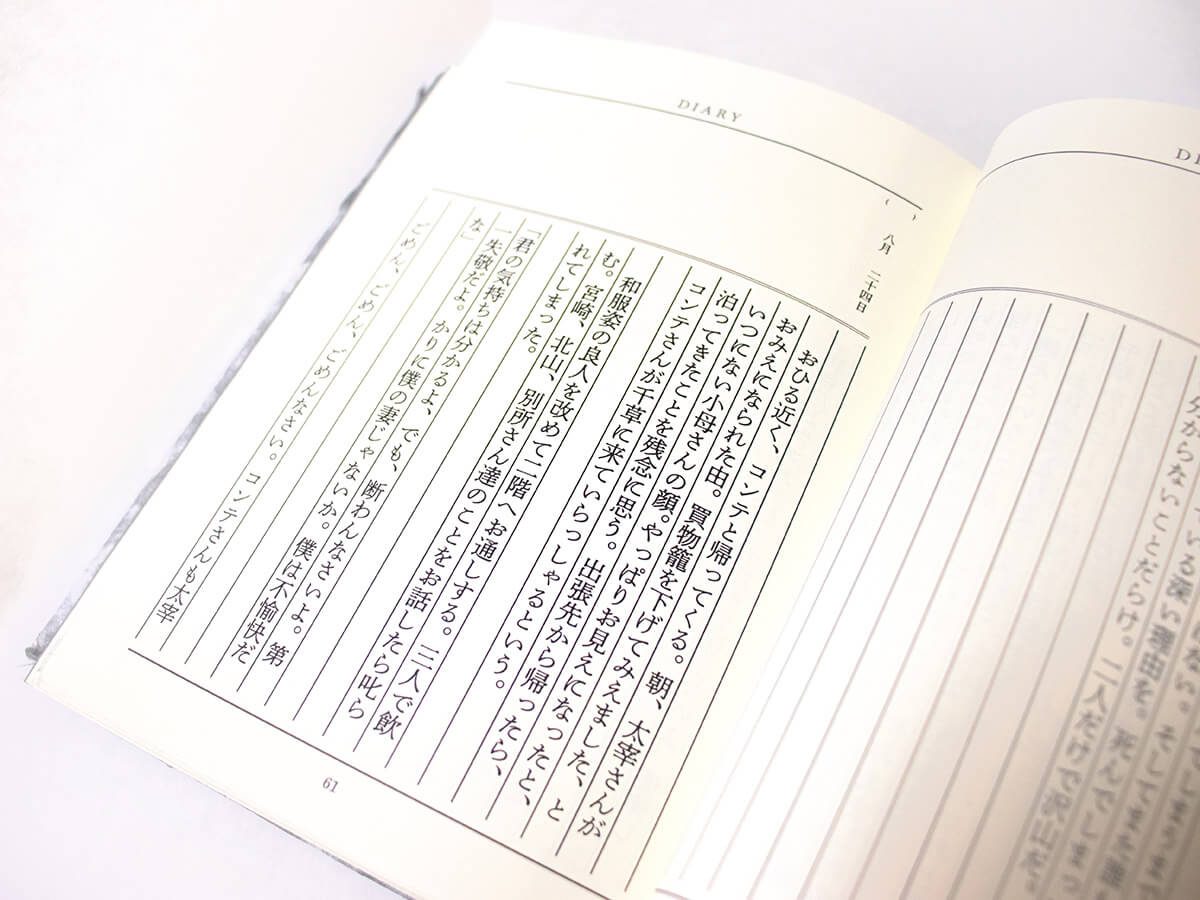 DI
いる深い理由を。死んでしまっ
分からないことだらけ。二人だけで沢山を。
DIARY
( ) 八月 二十四日
おひる近く、コンテと帰ってくる。朝、太宰さんが
おみえになられた由。買物籠を下げてみえました、と
いつにない小母さんの顔。やっぱりお見えになったと、
泊ってきたことを残念に思う。出張先から帰ったら、
コンテさんが千草に来ていらっしゃるという。
和服姿の良人を改めて二階へお通しする。三人で飲
む。宮崎、北山、別所さん達のことをお話したら叱ら
れてしまった。
「君の気持ちは分かるよ、でも、断わんなさいよ。第
一失敬だよ。かりに僕の妻じゃないか。僕は不愉快だ
な」
ごめん、ごめん、ごめんなさい。コンテさんも太宰
61